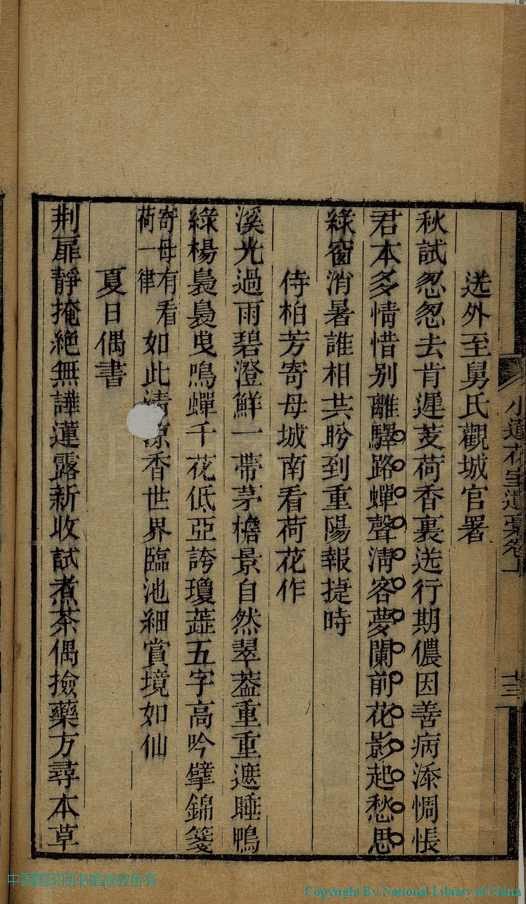 送外至舅氏觀城官署
秋試怱怱去肯遲芰荷香裏送行期儂因善病添惆悵
君本多情惜別離驛路蟬聲淸客夢闌前花影起愁思
綠窗消暑誰相共盼到重陽報捷時
侍柏芳寄母城南看荷花作
溪光過雨碧澄鮮一帶茅檐景自然翠葢重重遮睡鴨
綠楊裊裊曳鳴蟬千花低亞誇瓊蕋五字高吟擘錦箋
寄母有看荷一律如此淸涼香世界臨池細賞境如仙
夏日偶書
荆扉靜掩絕無譁蓮露新收試煮茶偶撿藥方尋本草
小蓮花室遺稾卷上
十三
Copyright By National Library of China